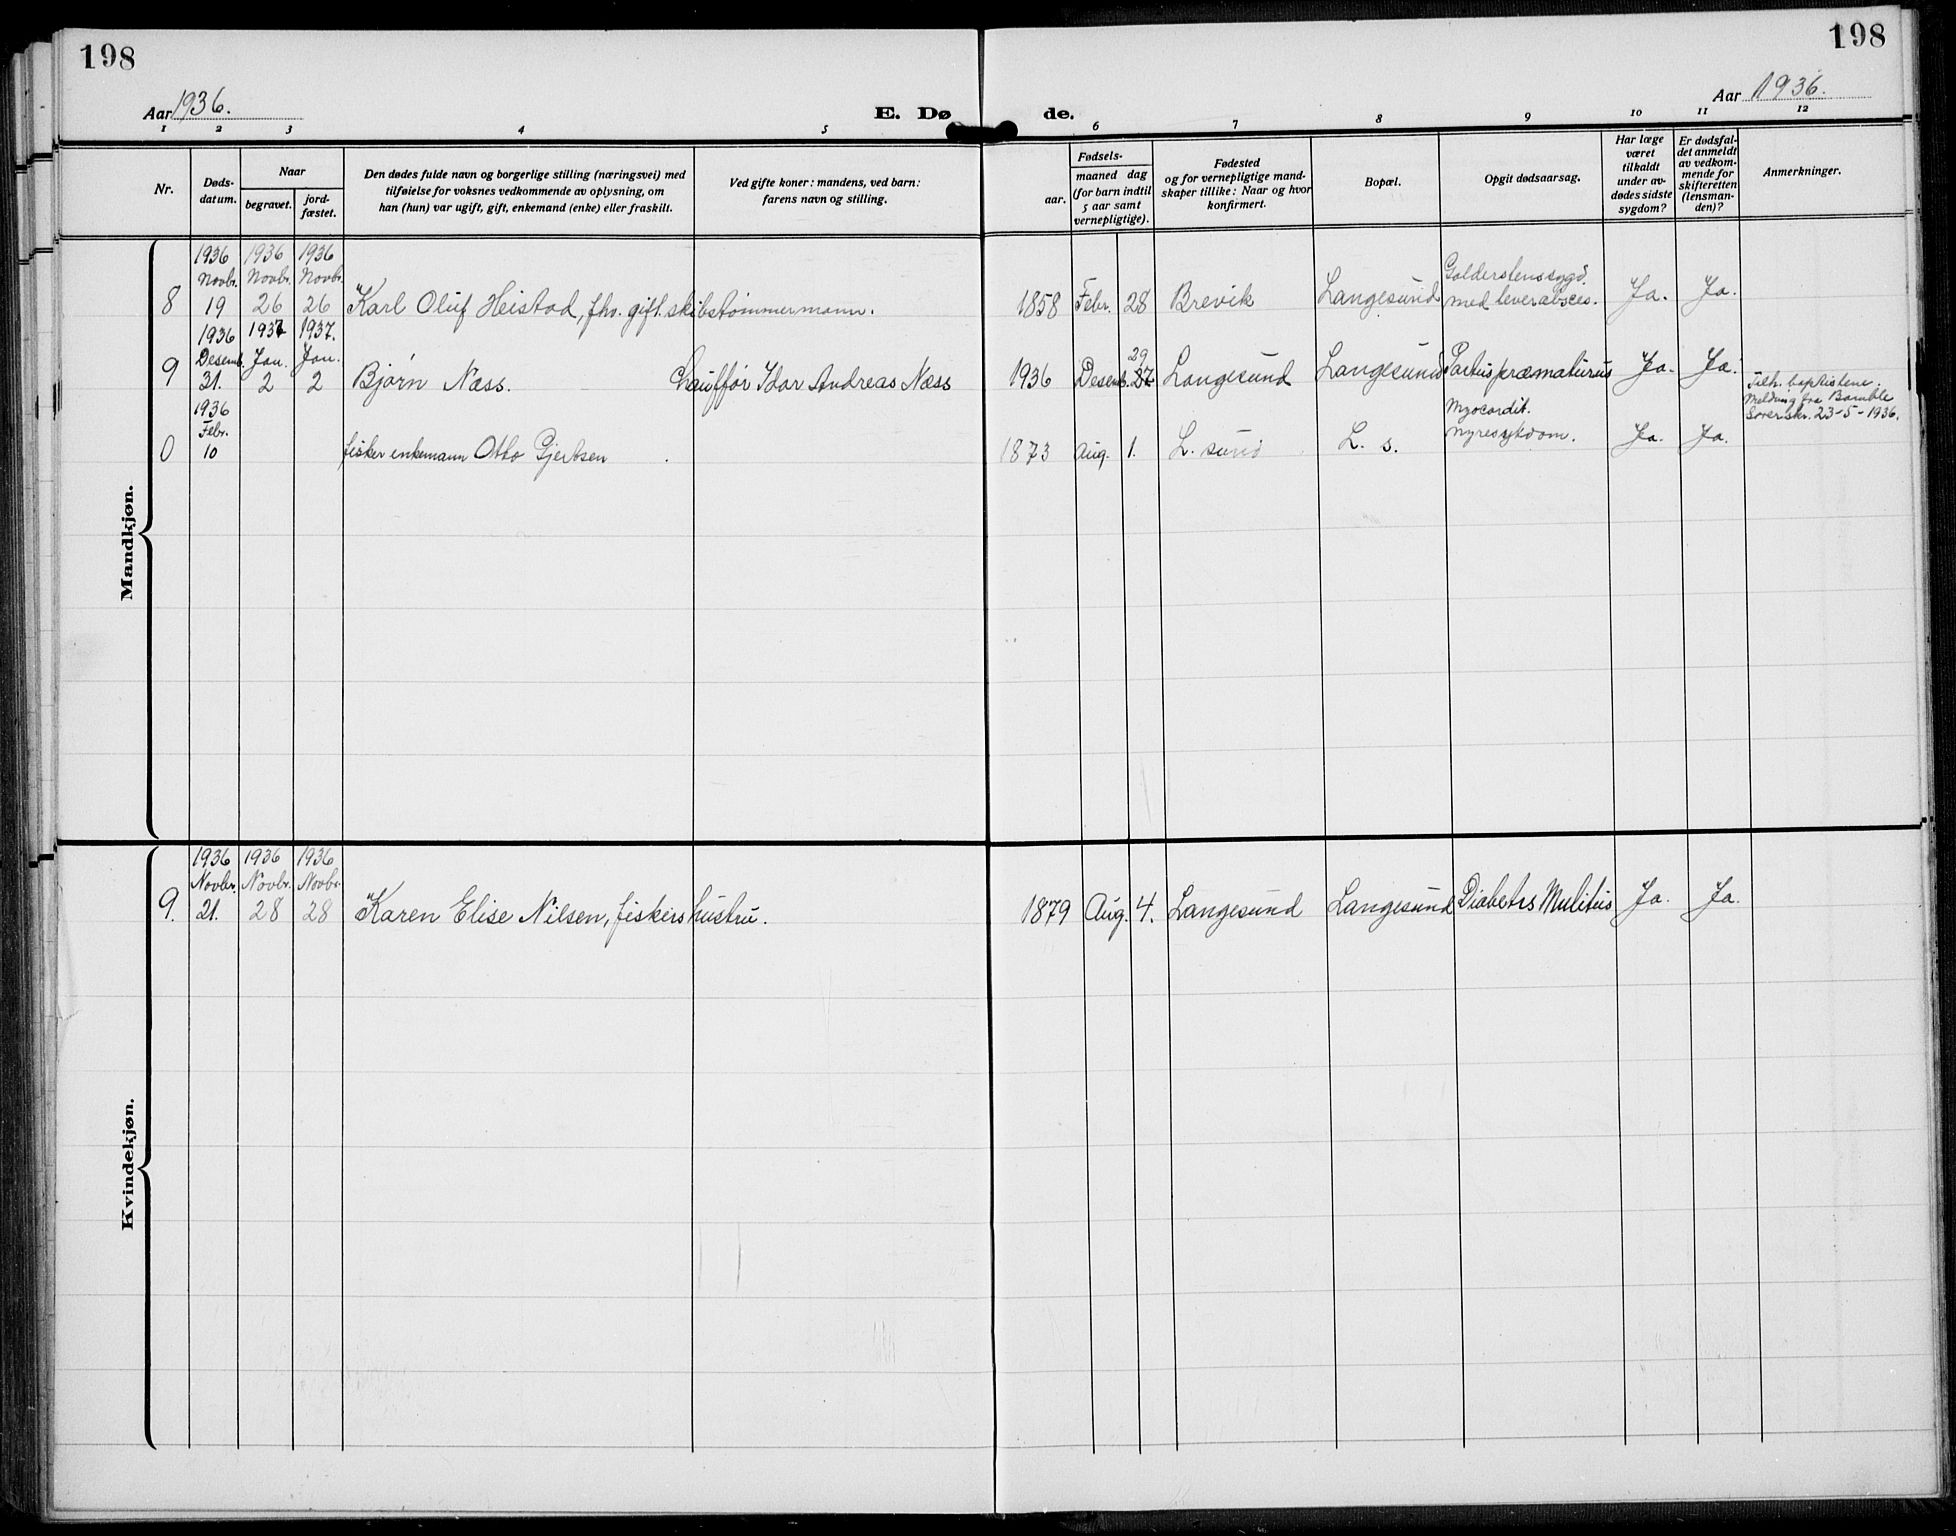 198
198
Aar 1936.
E. Døde.
Aar 1936.
1 2 3 4 5 6 7 8 9 10 11 12
Nr.
Døds-
datum.
Naar
begravet.
jord-
fæstet.
Den dødes fulde navn og borgerlige stilling (næringsvei) med
tilføielse for voksnes vedkommende av oplysning, om
han (hun) var ugift, gift, enkemand (enke) eller fraskilt.
Ved gifte koner: mandens, ved barn:
farens navn og stilling.
Fødsels-
aar.
maaned dag
(for barn indtil
5 aar samt
vernepligtige).
Fødested
og for vernepligtige mand-
skaper tillike: Naar og hvor
konfirmert.
Bopæl.
Opgit dødsaarsag.
Har læge
været
tilkaldt
under av-
dødes sidste
sygdom?
Er dødsfal-
det anmeldt
av vedkom-
mende for
skifteretten
(lensman-
den)?
Anmerkninger.
Mandkjøn.
1936 1936 1936
Novbr. Novbr. Novbr. Galdestenssygd.
8 19 26 26 Karl Oluf Heistad, fhv. gift. skibstømmermann. 1858 Febr. 28 Brevik Langesund med leverabsces. Ja. Ja.
1936 1937 1937.
Desemb. Jan. Jan. 29
9 31. 2 2 Bjørn Næss. Chauffør Idar Andreas Næss 1936 Desemb. 27 Langesund Langesund Partus præmaturus Ja. Ja.
Tilh. baptistene.
Melding fra Bamble
Sorenskr. 23-5-1936.
1936
Febr. Myocardit.
0 10 fisker enkemann Otto Gjertsen 1873 Aug. 1. L. sund L. s. Nyresykdom. Ja. Ja.
Kvindekjøn.
1936 1936 1936
Novbr. Novbr. Novbr.
9. 21. 28 28 Karen Elise Nilsen, fiskers hustru. 1879 Aug. 4. Langesund Langesund Diabetes Mulitus Ja. Ja.